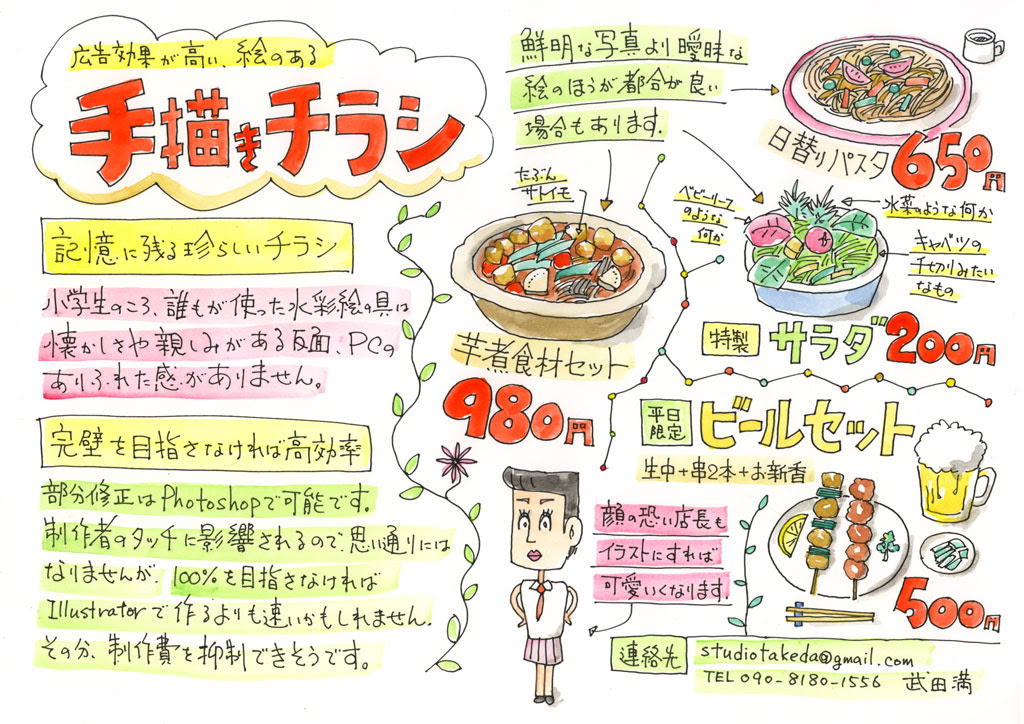 広告効果が高い、絵のある
手描きチラシ
記憶に残る珍らしいチラシ
小学生のころ、誰もが使った水彩絵の具は
懐かしさや親しみがある反面、PCの
ありふれた感がありません。
完壁を目指さなければ高効率
部分修正はPhotoshopで可能です。
制作者のタッチに影響されるので、思い通りには
なりませんが、100%を目指さなければ
Illustratorで作るよりも速いかもしれません。
その分、制作費を抑制できそうです。
鮮明な写真より曖昧な
絵のほうが都合が良い
場合もあります。
日替りパスタ650円
たぶん
サトイモ
芋煮食材セット
980円
ベビーリーフ
のような
何か
水菜のような何か
キャベツの
千切りみたい
なもの
特製 サラダ200円
平日
限定
ビールセット
生中+串2本+お新香
500円
顔の恐い店長も
イラストにすれば
可愛いくなります。
連絡先
studiotakeda@gmail.com
TEL 090-8180-1556 武田満